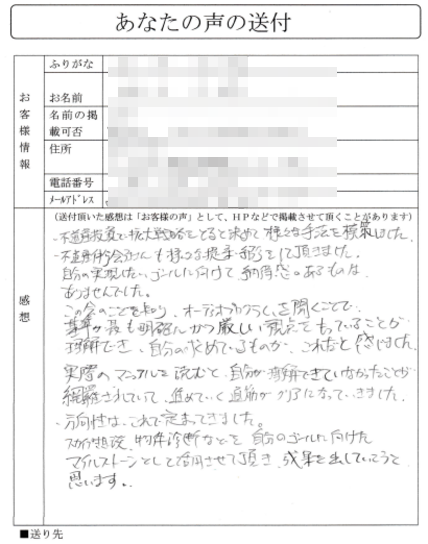 あなたの声の送付
お客様情報
ふりがな
お名前
名前の掲載可否
住所
電話番号
メールアドレス
感想
(送付頂いた感想は「お客様の声」として、HPなどで掲載させて頂くことがあります)
・不動産投資で拡大戦略をとると決めて様々な手法を模索しました。
・不動産仲介会社さんも様々な提案・紹介をして頂きました。
自分の実現したいゴールに向けて納得感のあるものは
ありませんでした。
この会のことを知り、オーディオプログラムを聞くことで、
基準が最も明確にかつ厳しい視点でもっていることが
理解でき、自分の求めているものが、これだと感じました。
実際のマニュアルを読むと、自分が理解できていなかったことが
網羅されていて、進めていく道筋がクリアになっていきました。
・方向性は、これで定まってきました。
スカイプ相談、物件診断などを自分のゴールに向けた
マイルストーンとして活用させて頂き、成果を出していこうと
思います。
■送り先